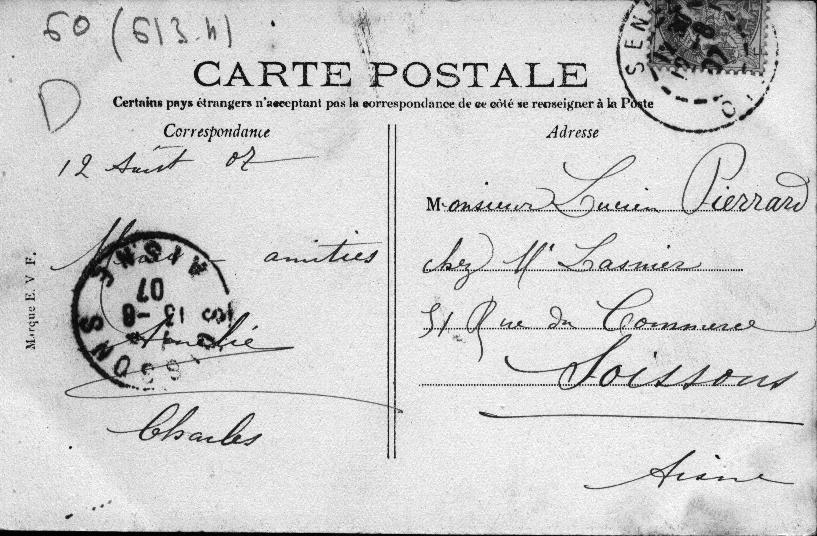 60 (613.4)
D
CARTE POSTALE
Certains pays étrangers n'acceptant pas la correspondance de ce côté se renseigner à la Poste
Correspondance
12 Août 07
amitiés
Amélie
Charles
Marque E. V. F.
SOISSONS AISNE
13 -8
07
Adresse
Monsieur Lucien Pierrard
chez Mr Lasnier
51 Rue du Commerce
Soissons
Aisne
SEN
12 -8
07